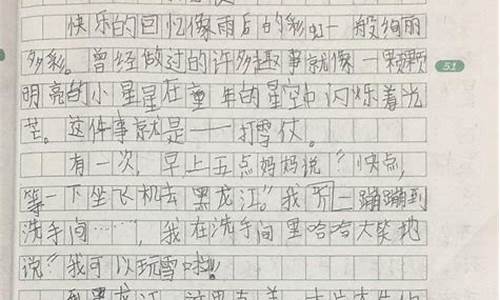 快乐的回忆像雨后的彩虹一般绚丽
多彩。曾经做过的许多趣事就像一颗颗
明亮的小星星在童年的星空中闪烁着光
芒。这件事就是——打雪仗。
有一次,早上五点妈妈说"快点,
等一下坐飞机去黑龙江。"我一蹦蹦到
洗手间……,我在洗手间里哈哈大笑地
说"我可以玩雪啦!"
到黑龙江,这里真美
51